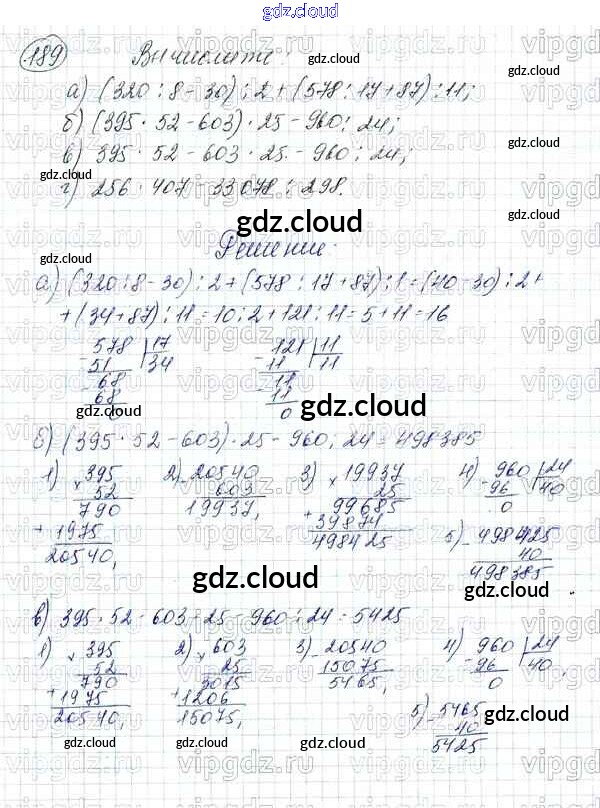 gdz.cloud
189 Вычислите:
а) (320 : 8 - 30) : 2 + (578 : 17 + 87) : 11;
б) (395 · 52 - 603) · 25 - 960 : 24;
в) 395 · 52 - 603 · 25 - 960 : 24;
г) 256 · 407 - 33078 : 298.
Решение:
а) (320 : 8 - 30) : 2 + (578 : 17 + 87) : 11 = (40 - 30) : 2 +
+ (34 + 87) : 11 = 10 : 2 + 121 : 11 = 5 + 11 = 16
- 578 | 17
51 | 34
- 68
68
0
- 121 | 11
11 | 11
- 11
11
0
б) (395 · 52 - 603) · 25 - 960 : 24 = 498385
1) × 395
52
790
+ 1975
20540,
2) - 20540
603
19937,
3) × 19937
25
99685
+ 39874
498425
4) - 960 | 24
96 | 40
0
5) - 498425
40
498385
в) 395 · 52 - 603 · 25 - 960 : 24 = 5425
1) × 395
52
790
+ 1975
20540,
2) × 603
25
3015
+ 1206
15075,
3) - 20540
15075
5465,
4) - 960 | 24
96 | 40
0
5) - 5465
40
5425
gdz.cloud
gdz.cloud
gdz.cloud
gdz.cloud
gdz.cloud
gdz.cloud
gdz.cloud
gdz.cloud
gdz.cloud
gdz.cloud
gdz.cloud
gdz.cloud
gdz.cloud